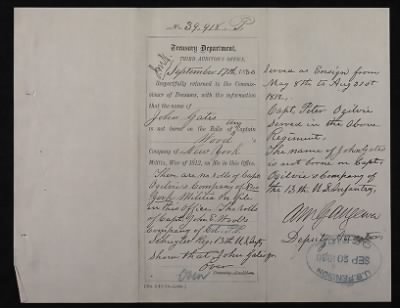 No. 39.918 P.
Treasury Department,
THIRD AUDITOR'S OFFICE,
September 17th, 1880
Respectfully returned to the Commis-
sioner of Pensions, with the information
that the name of
John Gates
is not borne on the Rolls of Captain
Wood
Company of New York
Militia, War of 1812, on file in this Office.
There are no rolls of Capt
Ogilvie's Company of New
York Militia on file
in this Office. The rolls
of Capt. John E. Wool's
Company of Col. P.
Schuyler Regt 13th U.S. Infty
Show that John Gates Jr.
over
Served as Ensign from
May 8th to Aug 31st
1812.
Capt. Peter Ogilvie
Served in the above
Regiment.
The name of John Gates
is not borne on Capt.
Ogilvie's Company of
the 13th U.S. Infantry.
Deputy Auditor
U.S. PENSION
SEP 20 1880